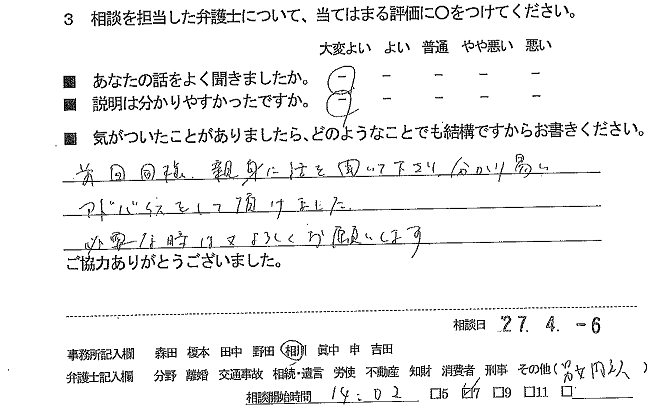 3 相談を担当した弁護士について、当てはまる評価に〇をつけてください。
大変よい よい 普通 やや悪い 悪い
■ あなたの話をよく聞きましたか。 － － － － －
■ 説明は分かりやすかったですか。 － － － － －
■ 気がついたことがありましたら、どのようなことでも結構ですからお書きください。
前回同様、親身に話を聞いて下さり、分かり易い
アドバイスをして頂けました。
必要な時は又よろしくお願いします
ご協力ありがとうございました。
相談日 27. 4. -6
事務所記入欄 森田 榎本 田中 野田 相川 眞中 申 吉田
弁護士記入欄 分野 離婚 交通事故 相続・遺言 労使 不動産 知財 消費者 刑事 その他(男女問題)
相談開始時間 14:02 □5 ☑7 □9 □11 □